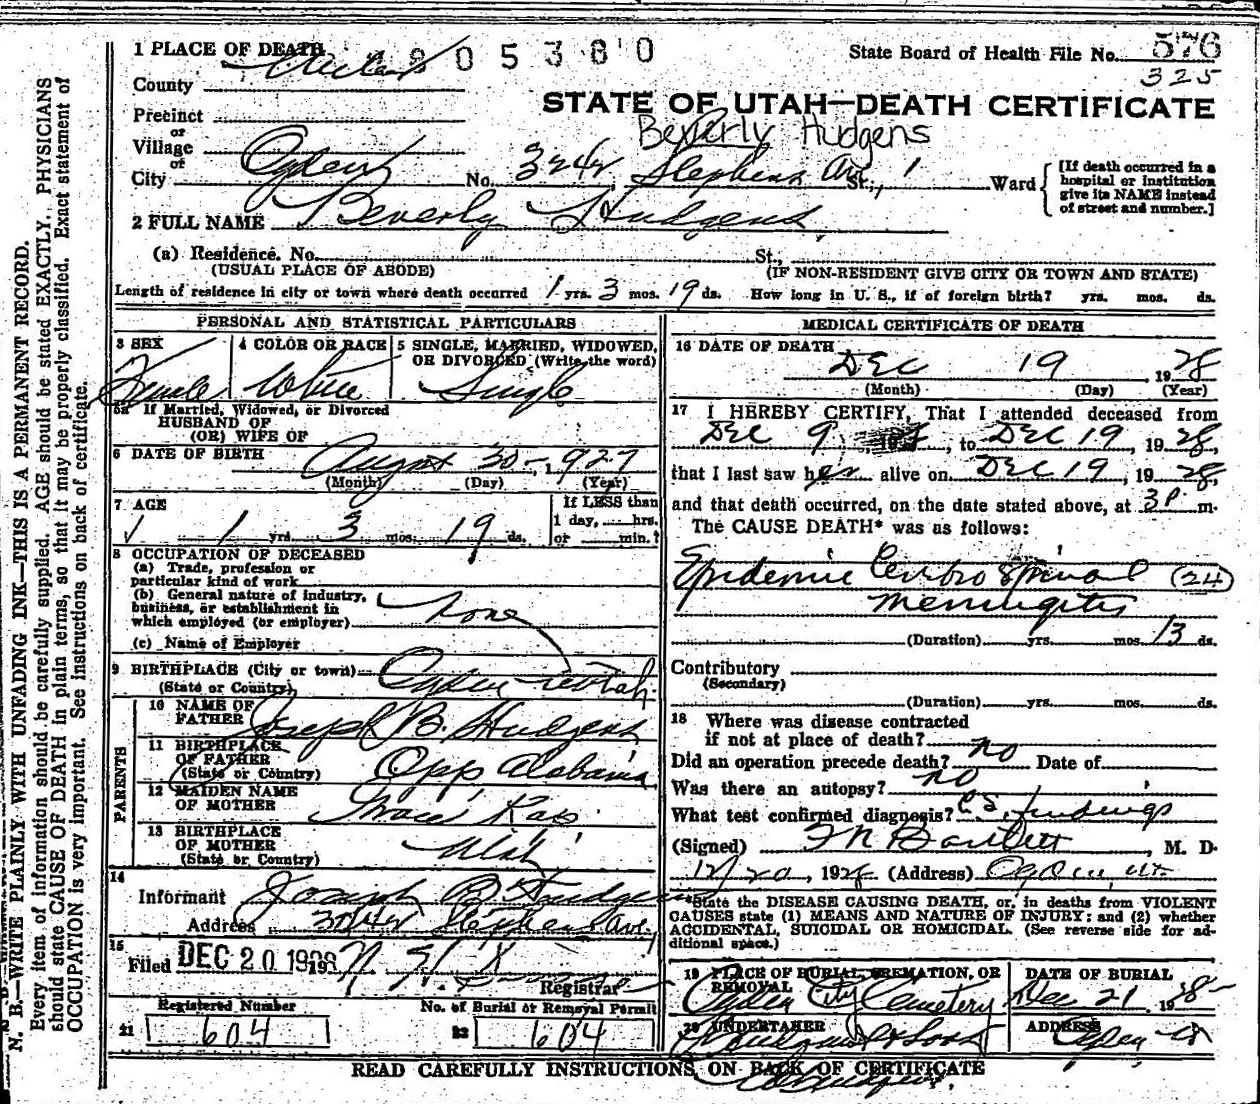 1 PLACE OF DEATH 2805360 State Board of Health File No. 576
County 325
Precinct
or
Village
of
City Ogden No. 3242 Stephens Ave St., 1 Ward
STATE OF UTAH—DEATH CERTIFICATE
Beverly Hudgens
[If death occurred in a
hospital or institution
give its NAME instead
of street and number.]
2 FULL NAME Beverly Hudgens
(a) Residence. No. St.,
(USUAL PLACE OF ABODE) (IF NON-RESIDENT GIVE CITY OR TOWN AND STATE)
Length of residence in city or town where death occurred 1 yrs. 3 mos. 19 ds. How long in U. S., if of foreign birth? yrs. mos. ds.
PERSONAL AND STATISTICAL PARTICULARS
3 SEX 4 COLOR OR RACE 5 SINGLE, MARRIED, WIDOWED,
OR DIVORCED (Write the word)
Female White Single
5a If Married, Widowed, or Divorced
HUSBAND OF
(OR) WIFE OF
6 DATE OF BIRTH August 30 - 1927
(Month) (Day) (Year)
7 AGE If LESS than
1 yrs. 3 mos. 19 ds. 1 day, hrs.
or min.?
8 OCCUPATION OF DECEASED
(a) Trade, profession or
particular kind of work
(b) General nature of industry,
business, or establishment in
which employed (or employer) none
(c) Name of Employer
9 BIRTHPLACE (City or town) Ogden Utah
(State or Country)
PARENTS
10 NAME OF
FATHER Joseph B. Hudgens
11 BIRTHPLACE
OF FATHER Opp Alabama
(State or Country)
12 MAIDEN NAME
OF MOTHER
13 BIRTHPLACE
OF MOTHER Utah
(State or Country)
14
Informant Joseph B Hudgens
Address 3242 Stephens Ave.
15
Filed DEC 20 1928
Registrar
Registered Number No. of Burial or Removal Permit
21 604 22 604
MEDICAL CERTIFICATE OF DEATH
16 DATE OF DEATH
Dec 19 1928
(Month) (Day) (Year)
17 I HEREBY CERTIFY, That I attended deceased from
Dec 9, to Dec 19, 1928,
that I last saw her alive on Dec 19, 1928,
and that death occurred, on the date stated above, at 3 P. m.
The CAUSE DEATH* was as follows:
Epidemic Cerebro Spinal (24)
Meningitis
(Duration) yrs. mos. 13 ds.
Contributory
(Secondary)
(Duration) yrs. mos. ds.
18 Where was disease contracted
if not at place of death?
Did an operation precede death? no Date of
Was there an autopsy? no
What test confirmed diagnosis? C.S. findings
(Signed) Bartlett, M. D.
12/20, 1928 (Address) Ogden, Ut.
*State the DISEASE CAUSING DEATH, or, in deaths from VIOLENT
CAUSES state (1) MEANS AND NATURE OF INJURY; and (2) whether
ACCIDENTAL, SUICIDAL OR HOMICIDAL. (See reverse side for ad-
ditional space.)
19 PLACE OF BURIAL, CREMATION, OR DATE OF BURIAL
REMOVAL
Ogden City Cemetery Dec 21, 1928
20 UNDERTAKER ADDRESS
& Sons Ogden
READ CAREFULLY INSTRUCTIONS ON BACK OF CERTIFICATE
N. B.—WRITE PLAINLY WITH UNFADING INK—THIS IS A PERMANENT RECORD.
Every item of information should be carefully supplied. AGE should be stated EXACTLY. PHYSICIANS
should state CAUSE OF DEATH in plain terms, so that it may be properly classified. Exact statement of
OCCUPATION is very important. See instructions on back of certificate.